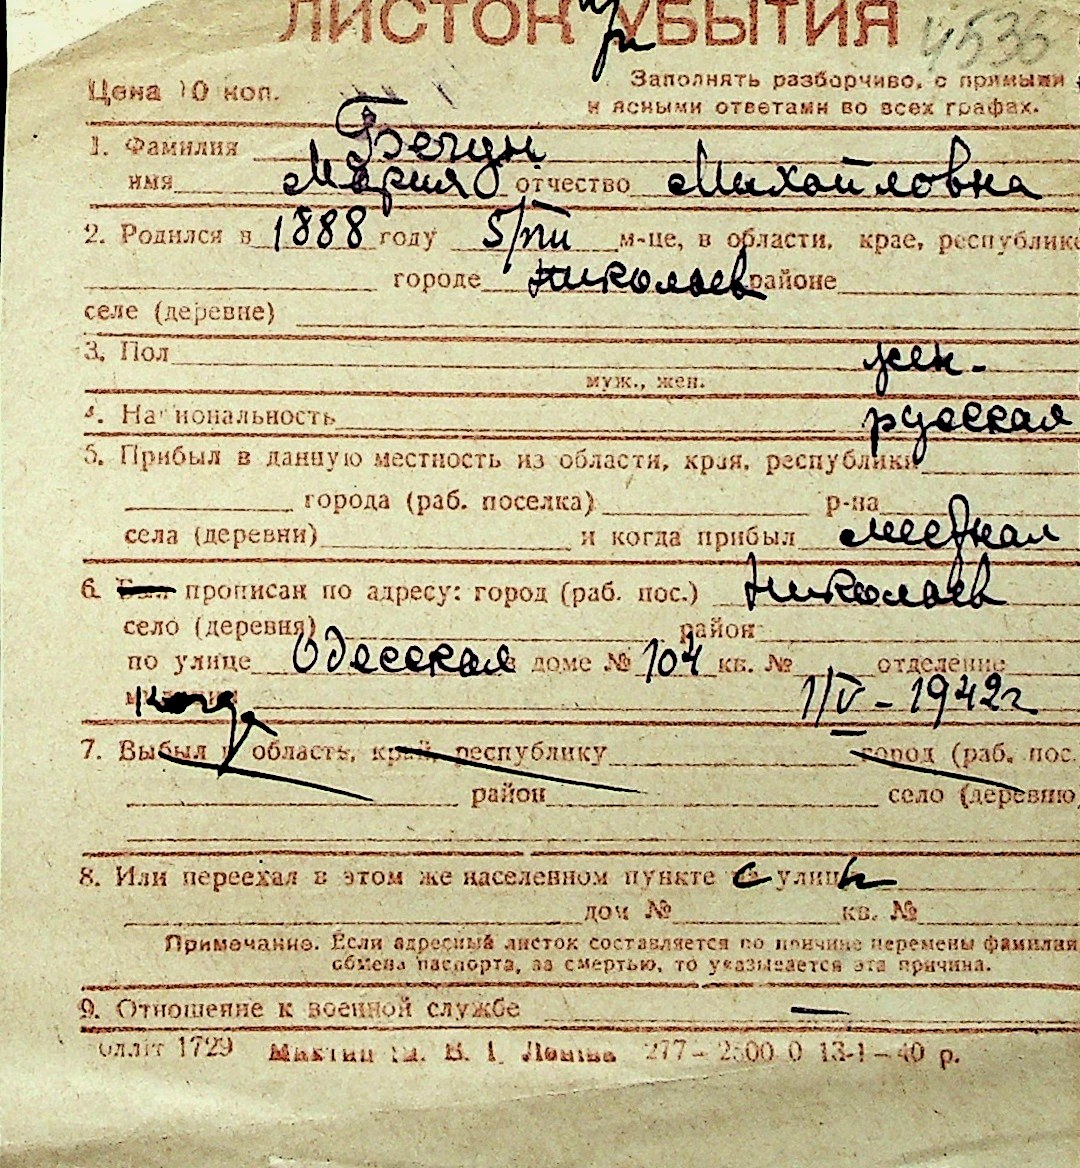 ЛИСТОК при УБЫТИЯ 4535
Цена 10 коп. Заполнять разборчиво, с прямыми
и ясными ответами во всех графах.
1. Фамилия Бечун
имя Мария отчество Михайловна
2. Родился в 1888 году 5/VIII м-це, в области, крае, республике
городе Николаев районе
селе (деревне)
3. Пол жен.
муж., жен.
4. Национальность русская
5. Прибыл в данную местность из области, края, республики
города (раб. поселка) р-на
села (деревни) и когда прибыл местная
6. Был прописан по адресу: город (раб. пос.) Николаев
село (деревня) район
по улице Одесская в доме № 104 кв. № отделение
милиции когда 1/V - 1942г
7. Выбыл в область, край, республику город (раб. пос.
район село (деревню
8. Или переехал в этом же населенном пункте с улицы
дом № кв. №
Примечание. Если адресный листок составляется по причине перемены фамилии
обмена паспорта, за смертью, то указывается эта причина.
9. Отношение к военной службе —
1729 В. І. Леніна 277 – 2500 0 13-1-40 р.